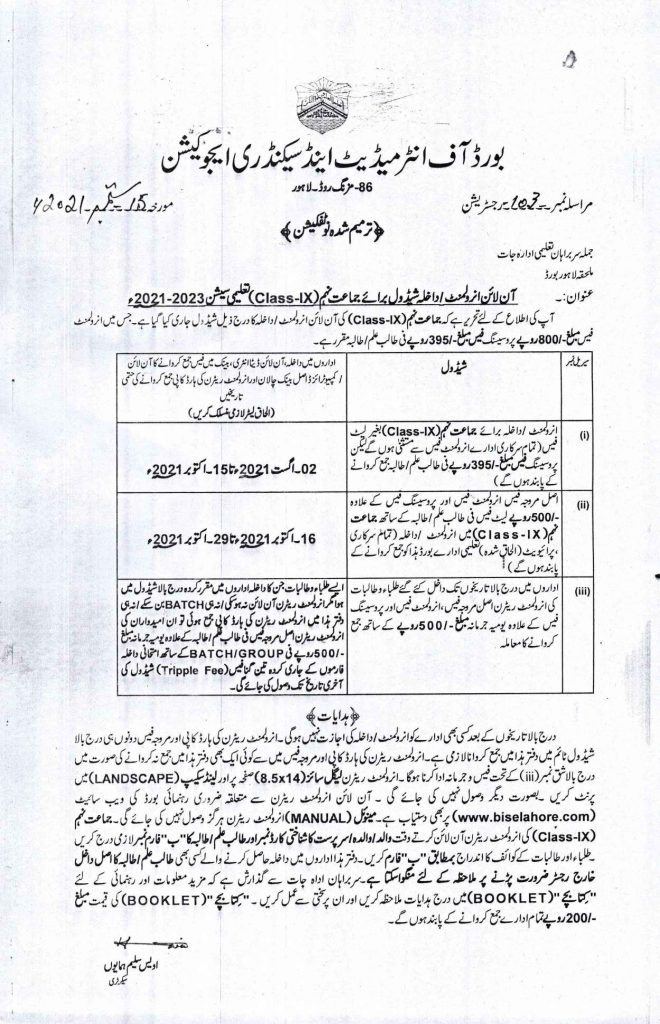 بورڈ آف انٹر میڈیٹ اینڈ سیکنڈری ایجوکیشن
86-مزنگ روڈ۔ لاہور
مراسلہ نمبر 103 رجسٹریشن
مورخہ 15 ستمبر 2021ء
﴿ترمیم شدہ نوٹفکیشن﴾
جملہ سربراہان تعلیمی ادارہ جات
ملحقہ لاہور بورڈ
عنوان:۔ آن لائن انرولمنٹ/داخلہ شیڈول برائے جماعت نہم (Class-IX) تعلیمی سیشن 2023-2021ء
آپ کی اطلاع کے لئے تحریر ہے کہ جماعت نہم (Class-IX) کی آن لائن انرولمنٹ/داخلہ کا درج ذیل شیڈول جاری کیا گیا ہے۔ جس میں انرولمنٹ
فیس مبلغ -/800 روپے پروسیسنگ فیس مبلغ -/395 روپے فی طالب علم/طالبہ مقرر ہے۔
سیریل نمبر
شیڈول
اداروں میں داخلہ، آن لائن ڈیٹا انٹری، بینک میں فیس جمع کروانے کا آن لائن
/کمپیوٹرائزڈ اصل بینک چالان اور انرولمنٹ ریٹرن کی ہارڈ کاپی جمع کروانے کی حتمی
تاریخیں
(الحاق لیٹر لازمی منسلک کریں)
(i)
انرولمنٹ/داخلہ برائے جماعت نہم (Class-IX) بغیر لیٹ
فیس (تمام سرکاری ادارے انرولمنٹ فیس سے مستثنیٰ ہوں گے لیکن
پروسیسنگ فیس مبلغ -/395 روپے فی طالب علم/طالبہ جمع کروانے
کے پابند ہوں گے)
02۔اگست 2021ء تا 15۔اکتوبر 2021ء
(ii)
اصل مروجہ فیس انرولمنٹ فیس اور پروسیسنگ فیس کے علاوہ
-/500 روپے لیٹ فیس فی طالب علم/طالبہ کے ساتھ جماعت
نہم (Class-IX) میں انرولمنٹ/داخلہ (تمام سرکاری
،پرائیویٹ (الحاق شدہ) تعلیمی ادارے بورڈ ہذا کو جمع کروانے کے
پابند ہوں گے)
16۔اکتوبر 2021ء تا 29۔اکتوبر 2021ء
(iii)
اداروں میں درج بالا تاریخوں تک داخل کئے گئے طلباء و طالبات
کی انرولمنٹ ریٹرن اصل مروجہ فیس، انرولمنٹ فیس اور پروسیسنگ
فیس کے علاوہ یومیہ جرمانہ مبلغ -/500 روپے کے ساتھ جمع
کروانے کا معاملہ
ایسے طلباء و طالبات جن کا داخلہ اداروں میں مقرر کردہ درج بالا شیڈول میں
ہوا مگر انرولمنٹ ریٹرن آن لائن نہ ہو سکی/نہ ہی BATCH بن سکے/نہ ہی
دفتر ہذا میں انرولمنٹ ریٹرن کی ہارڈ کاپی جمع ہوئی تو ان امیدواران کی
انرولمنٹ ریٹرن اصل مروجہ فیس فی طالب علم/طالبہ کے علاوہ یومیہ جرمانہ مبلغ
-/500 روپے فی BATCH/GROUP کے ساتھ امتحانی داخلہ
فارموں کے جاری کردہ تین گنا فیس (Tripple Fee) شیڈول کی
آخری تاریخ تک وصول کی جائے گی۔
﴿ہدایات﴾
درج بالا تاریخوں کے بعد کسی بھی ادارے کو انرولمنٹ/داخلہ کی اجازت نہیں ہو گی۔ انرولمنٹ ریٹرن کی ہارڈ کاپی اور مروجہ فیس دونوں ہی درج بالا
شیڈول ٹائم میں دفتر ہذا میں جمع کروانا لازمی ہے۔ انرولمنٹ ریٹرن کی ہارڈ کاپی اور مروجہ فیس میں سے کوئی ایک بھی دفتر ہذا میں جمع نہ کروانے کی صورت میں
درج بالا شق نمبر (iii) کے تحت فیس و جرمانہ ادا کرنا ہو گا۔ انرولمنٹ ریٹرن لیگل سائز (8.5x14) صفحہ پر اور لینڈ سکیپ (LANDSCAPE) میں
پرنٹ کریں۔ بصورت دیگر وصول نہیں کی جائے گی۔ آن لائن انرولمنٹ ریٹرن سے متعلقہ ضروری رہنمائی بورڈ کی ویب سائیٹ
(www.biselahore.com) پر بھی دستیاب ہے۔ مینوئل (MANUAL) انرولمنٹ ریٹرن ہرگز وصول نہیں کی جائے گی۔ جماعت نہم
(Class-IX) کی انرولمنٹ ریٹرن آن لائن کرتے وقت والد/والدہ/سرپرست کا شناختی کارڈ نمبر اور طالب علم/طالبہ کا "ب" فارم نمبر لازمی درج کریں
۔طلباء اور طالبات کے کوائف کا اندراج بمطابق "ب" فارم کریں۔ دفتر ہذا اداروں میں داخلہ حاصل کرنے والے کسی بھی طالب علم/طالبہ کا اصل داخل
خارج رجسٹر ضرورت پڑنے پر ملاحظہ کے لئے منگوا سکتا ہے۔ سربراہان ادارہ جات سے گذارش ہے کہ مزید معلومات اور رہنمائی کے لئے
"کتابچے" (BOOKLET) میں درج ہدایات ملاحظہ کریں اور ان پر سختی سے عمل کریں۔ "کتابچے" (BOOKLET) کی قیمت مبلغ
-/200 روپے تمام ادارے جمع کروانے کے پابند ہوں گے۔
اویس سلیم ہمایوں
سیکرٹری